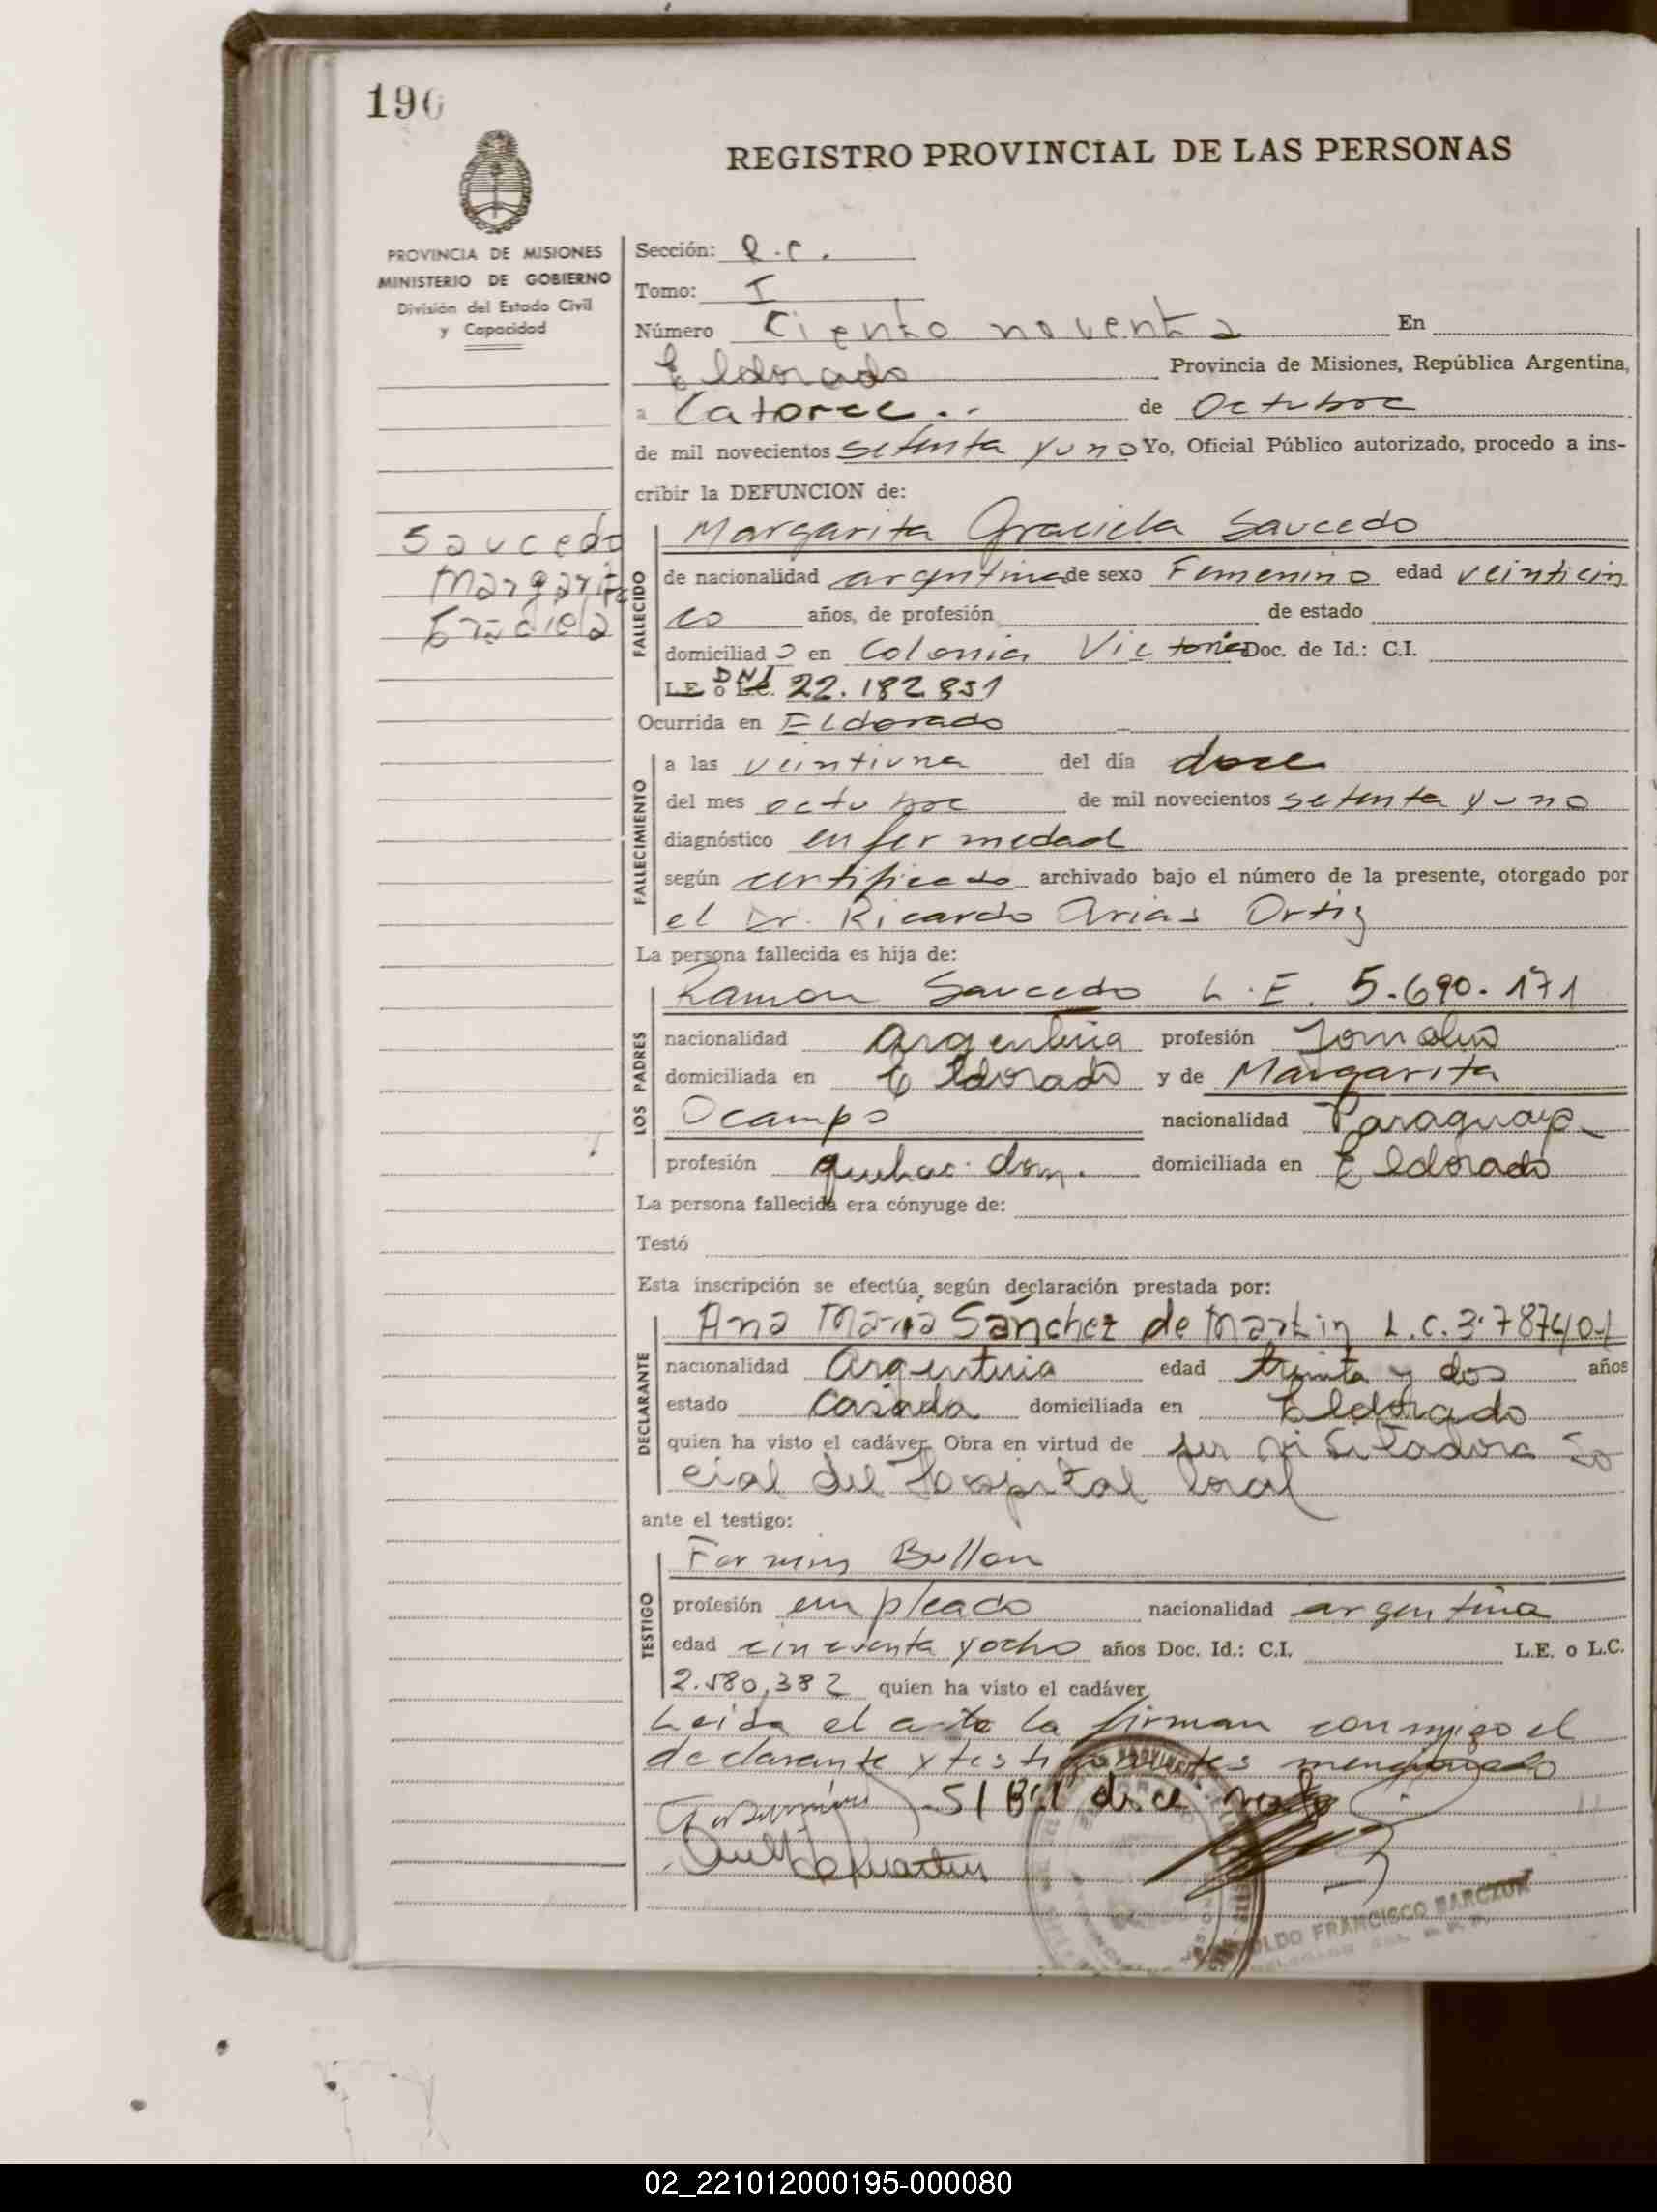 190
REGISTRO PROVINCIAL DE LAS PERSONAS
PROVINCIA DE MISIONES
MINISTERIO DE GOBIERNO
División del Estado Civil
y Capacidad
Sección: R.C.
Tomo: I
Número Ciento noventa En
Eldorado Provincia de Misiones, República Argentina,
a Catorce.. de Octubre
de mil novecientos setenta y uno Yo, Oficial Público autorizado, procedo a ins-
cribir la DEFUNCION de:
Saucedo
Margarita
Graciela
FALLECIDO
Margarita Graciela Saucedo
de nacionalidad argentina de sexo Femenino edad veinticin
co años, de profesión de estado
domiciliado en Colonia Victoria Doc. de Id.: C.I.
L.E. o L.C. DNI 22.182.851
Ocurrida en Eldorado
FALLECIMIENTO
a las veintiuna del día doce
del mes octubre de mil novecientos setenta y uno
diagnóstico enfermedad
según certificado archivado bajo el número de la presente, otorgado por
el Dr. Ricardo Arias Ortiz
La persona fallecida es hija de:
LOS PADRES
Ramon Saucedo L.E. 5.690.171
nacionalidad Argentina profesión
domiciliada en Eldorado y de Margarita
Ocampo nacionalidad Paraguaya
profesión quehac. dom. domiciliada en Eldorado
La persona fallecida era cónyuge de:
Testó
Esta inscripción se efectúa según declaración prestada por:
DECLARANTE
Ana Maria Sánchez de Martin L.C. 3.787401
nacionalidad Argentina edad treinta y dos años
estado casada domiciliada en Eldorado
quien ha visto el cadáver. Obra en virtud de ser visitadora so
cial del Hospital local
ante el testigo:
TESTIGO
Fermin Bullon
profesión empleado nacionalidad argentina
edad cincuenta y ocho años Doc. Id.: C.I. L.E. o L.C.
2.580.382 quien ha visto el cadáver.
Leida el acta la firman conmigo el
declarante y testigo antes mencionado
S/B: doce vale
FRANCISCO BARCZUK
02_221012000195-000080